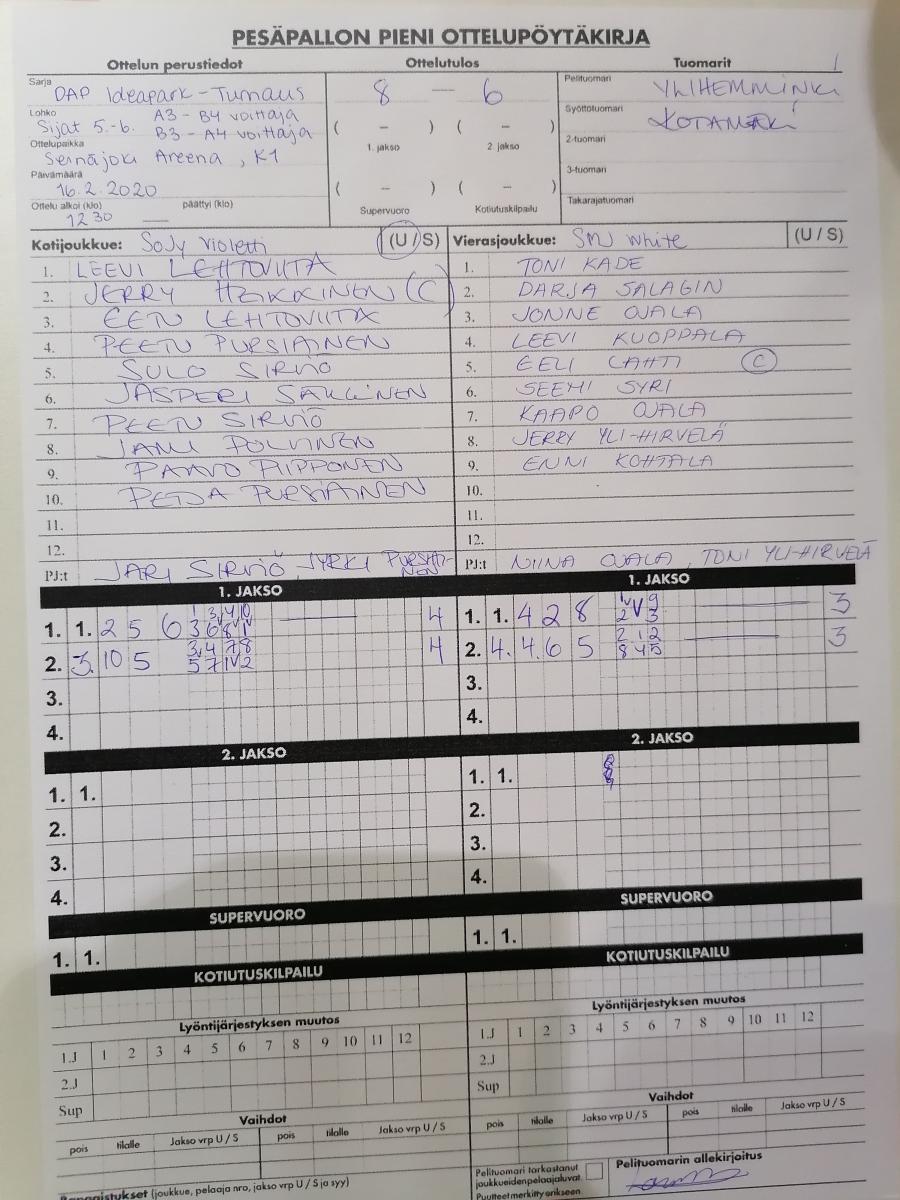 PESÄPALLON PIENI OTTELUPÖYTÄKIRJA
Ottelun perustiedot Ottelutulos Tuomarit
Sarja DAP Ideapark-Turnaus
Lohko Sijat 5.-6. A3 - B4 voittaja
B3 - A4 voittaja
Ottelupaikka Seinäjoki Areena, K1
Päivämäärä 16.2.2020
Ottelu alkoi (klo) 12 30 — päättyi (klo)
8 — 6
( – ) ( – )
1. jakso 2. jakso
( – ) ( – )
Supervuoro Kotiutuskilpailu
Pelituomari YLIHEMMINKI
Syöttötuomari KOTAMÄKI
2-tuomari
3-tuomari
Takarajatuomari
Kotijoukkue: SoJy Violetti (U / S)
1. LEEVI LEHTOVIITA
2. JERRY HEIKKINEN (C)
3. EETU LEHTOVIITA
4. PEETU PURSIAINEN
5. SULO SIRVIÖ
6. JASPERI SÄKKINEN
7. PEETU SIRVIÖ
8. JAMI POLVINEN
9. PAAVO PIIPPONEN
10. PETJA PURSIAINEN
11.
12.
PJ:t JARI SIRVIÖ, JYRKI PURSIAINEN
Vierasjoukkue: SMJ White (U / S)
1. TONI KADE
2. DARJA SALAGIN
3. JONNE OJALA
4. LEEVI KUOPPALA
5. EELI LAHTI C
6. SEEMI SYRI
7. KAAPO OJALA
8. JERRY YLI-HIRVELÄ
9. ENNI KOHTALA
10.
11.
12.
PJ:t NIINA OJALA, TONI YLI-HIRVELÄ
1. JAKSO
1. 1. 2 5 6 4
2. 3. 10 5 4
3.
4.
1. JAKSO
1. 1. 4 2 8 3
2. 4. 4 6 5 3
3.
4.
2. JAKSO
1. 1.
2.
3.
4.
2. JAKSO
1. 1.
2.
3.
4.
SUPERVUORO
1. 1.
SUPERVUORO
1. 1.
KOTIUTUSKILPAILU
KOTIUTUSKILPAILU
Lyöntijärjestyksen muutos
1.J 1 2 3 4 5 6 7 8 9 10 11 12
2.J
Sup
Lyöntijärjestyksen muutos
1.J 1 2 3 4 5 6 7 8 9 10 11 12
2.J
Sup
Vaihdot
pois tilalle Jakso vrp U / S pois tilalle Jakso vrp U / S
Vaihdot
pois tilalle Jakso vrp U / S pois tilalle Jakso vrp U / S
Rangaistukset (joukkue, pelaaja nro, jakso vrp U / S ja syy)
Pelituomari tarkastanut
joukkueiden pelaajaluvat
Puutteet merkitty erikseen
Pelituomarin allekirjoitus